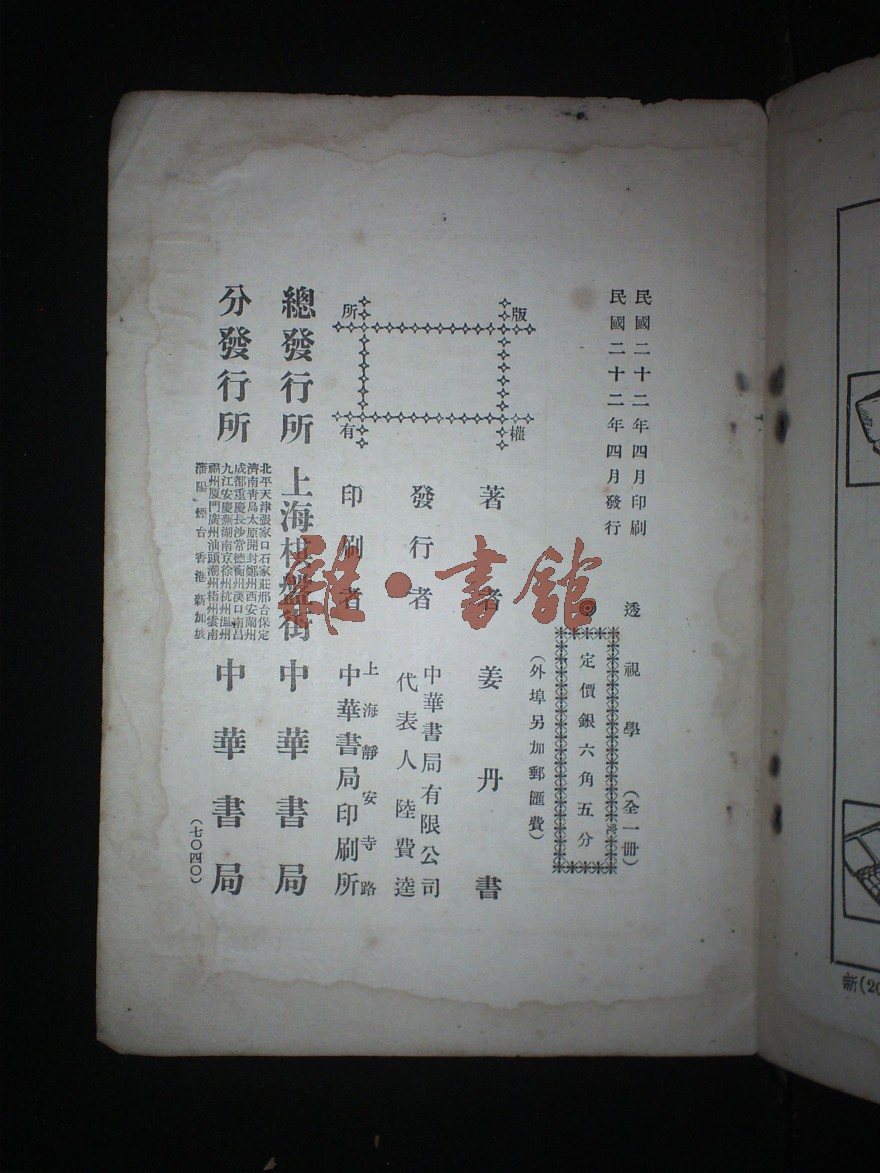 民國二十二年四月印刷
民國二十二年四月發行
透視學(全一冊)
◎定價銀六角五分
(外埠另加郵匯費)
版權所有
著者 姜丹書
發行者 中華書局有限公司
代表人 陸費逵
印刷者 上海靜安寺路
中華書局印刷所
總發行所 上海棋盤街 中華書局
分發行所 中華書局
北平天津張家口石家莊邢台保定
濟南青島太原開封鄭州西安蘭州
成都重慶長沙常德衡州漢口南昌
九江安慶蕪湖南京徐州杭州溫州
福州廈門廣州汕頭潮州梧州雲南
瀋陽煙台香港新加坡
(七〇四〇)
雜·書館
新(20